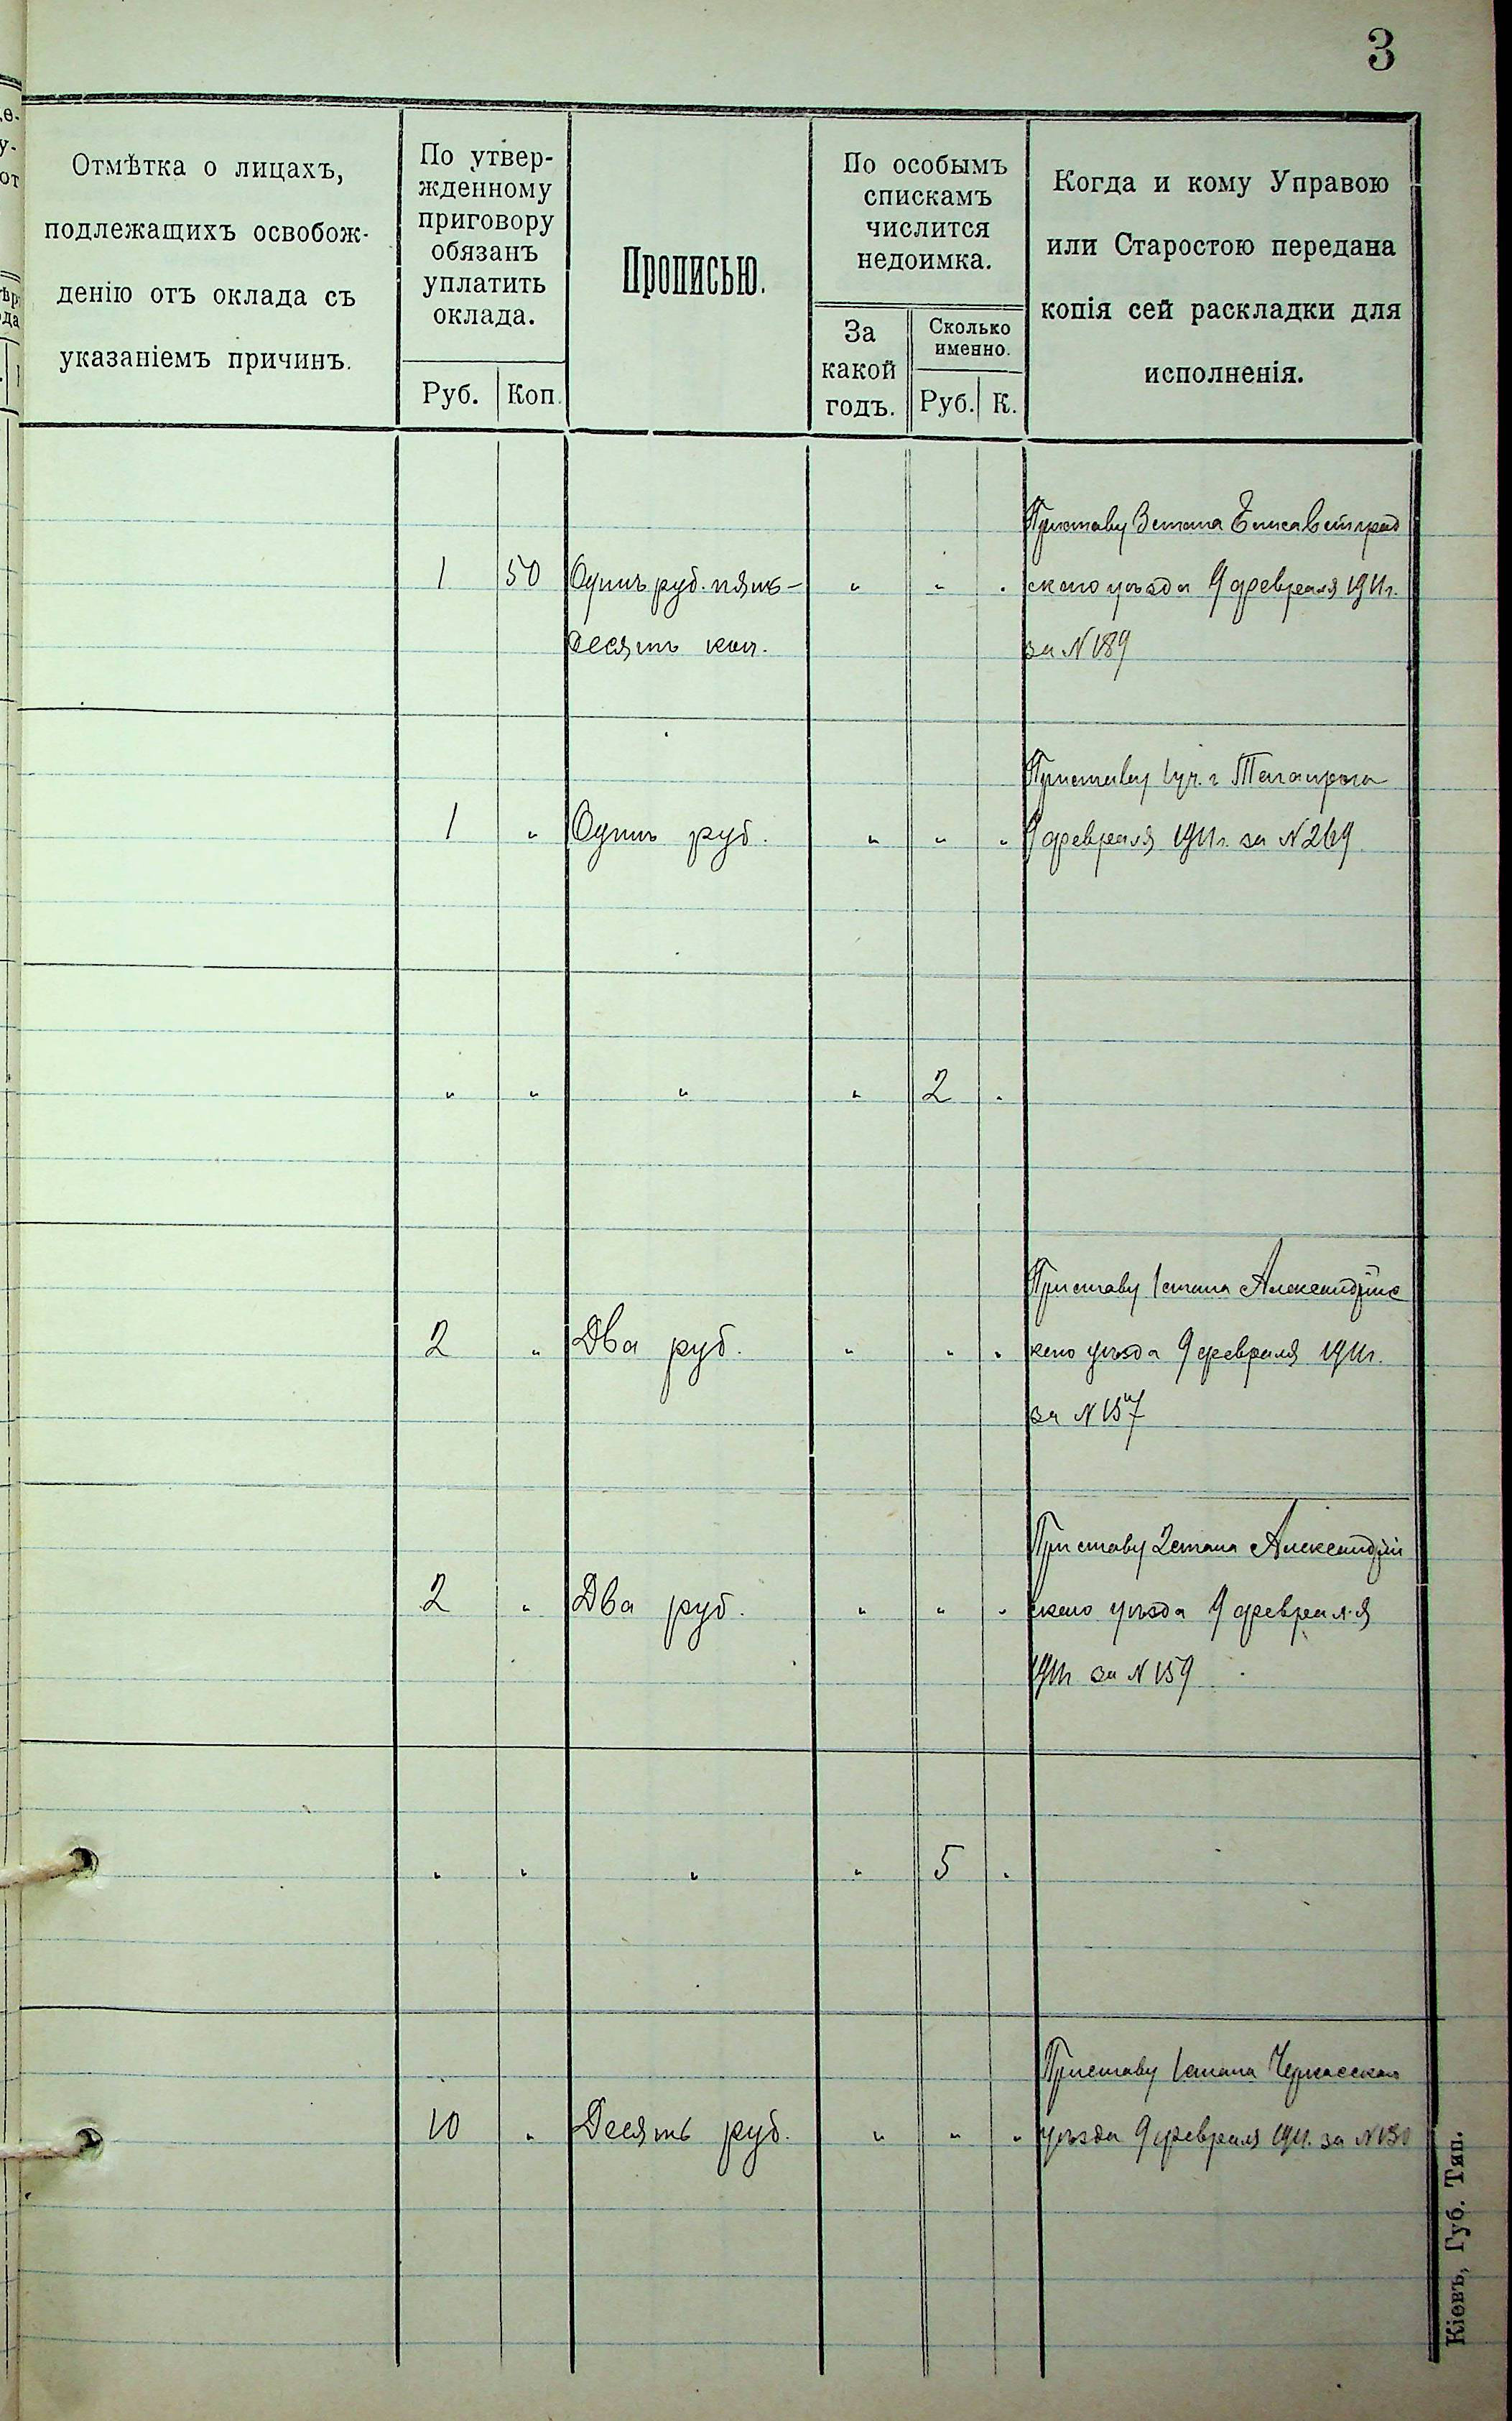 3
Отмѣтка о лицахъ,
подлежащихъ освобож-
денію отъ оклада съ
указаніемъ причинъ.
По утвер-
жденному
приговору
обязанъ
уплатить
оклада.
Руб. Коп.
Прописью.
По особымъ
спискамъ
числится
недоимка.
За
какой
годъ.
Сколько
именно.
Руб. К.
Когда и кому Управою
или Старостою передана
копія сей раскладки для
исполненія.
Приставу 3 стана Елисаветград
1 50 Одинъ руб. пять- " " " скаго уѣзда 9 февраля 1911 г.
десятъ коп. за N 189
Приставу 1 уч. г. Таганрога
1 " Одинъ руб. " " " 9 февраля 1911 г. за N 249
" " " " 2 "
Приставу 1 стана Александрійс
2 " Два руб. " " " каго уѣзда 9 февраля 1911 г.
за N 157
Приставу 2 стана Александрій
2 " Два руб. " " " скаго уѣзда 9 февраля
1911 за N 159
" " " " 5 "
Приставу 1 стана Черкасскаго
10 " Десять руб. " " " уѣзда 9 февраля 1911. за N 130
Кіевъ, Губ. Тип.